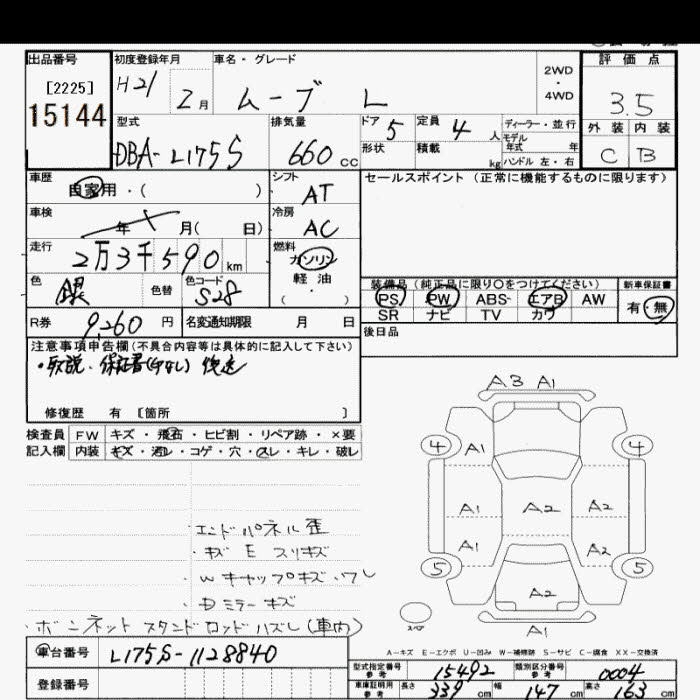 出品番号 初度登録年月 車名・グレード 評価点
[2225] H21 2月 ムーブ L 2WD・4WD 3.5
15144 型式 排気量 ドア 5 定員 4人 ディーラー・並行 外装 内装
DBA-L175S 660cc 形状 積載 kg モデル年式 年 ハンドル 左・右 C B
車歴 自家用・( ) シフト AT セールスポイント(正常に機能するものに限ります)
車検 年 月( 日) 冷房 AC
走行 2万3千590km 燃料 ガソリン 軽油 ・ ( )
色 銀 色替 色コード S28 装備品(純正品に限り○をつけてください) 新車保証書
PS PW ABS エアB AW 有・無
SR ナビ TV カワ
R券 9,260円 名変通知期限 月 日 後日品
注意事項申告欄(不具合内容等は具体的に記入して下さい)
・取説、保証書(印なし) 後送
修復歴 有 [箇所 ]
検査員 FW キズ・飛石・ヒビ割・リペア跡・×要
記入欄 内装 キズ・汚レ・コゲ・穴・スレ・キレ・破レ
A3 A1
4 A1 4
A1 A2 A2
A1 A2
5 A2 5
スペア A1
・エンドパネル歪
・キズ E スリキズ
・Wキャップキズ・ワレ
・Dミラーキズ
・ボンネットスタンドロッドハズレ(車内)
A-キズ E-エクボ U-凹み W-補修跡 S-サビ C-腐食 XX-交換済
車台番号 L175S-1128840
型式指定番号 参考 15492 類別区分番号 参考 0004
登録番号 車庫証明用 参考 長さ 339cm 幅 147cm 高さ 163cm